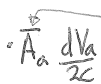 · A̅ₐ dVa/2c